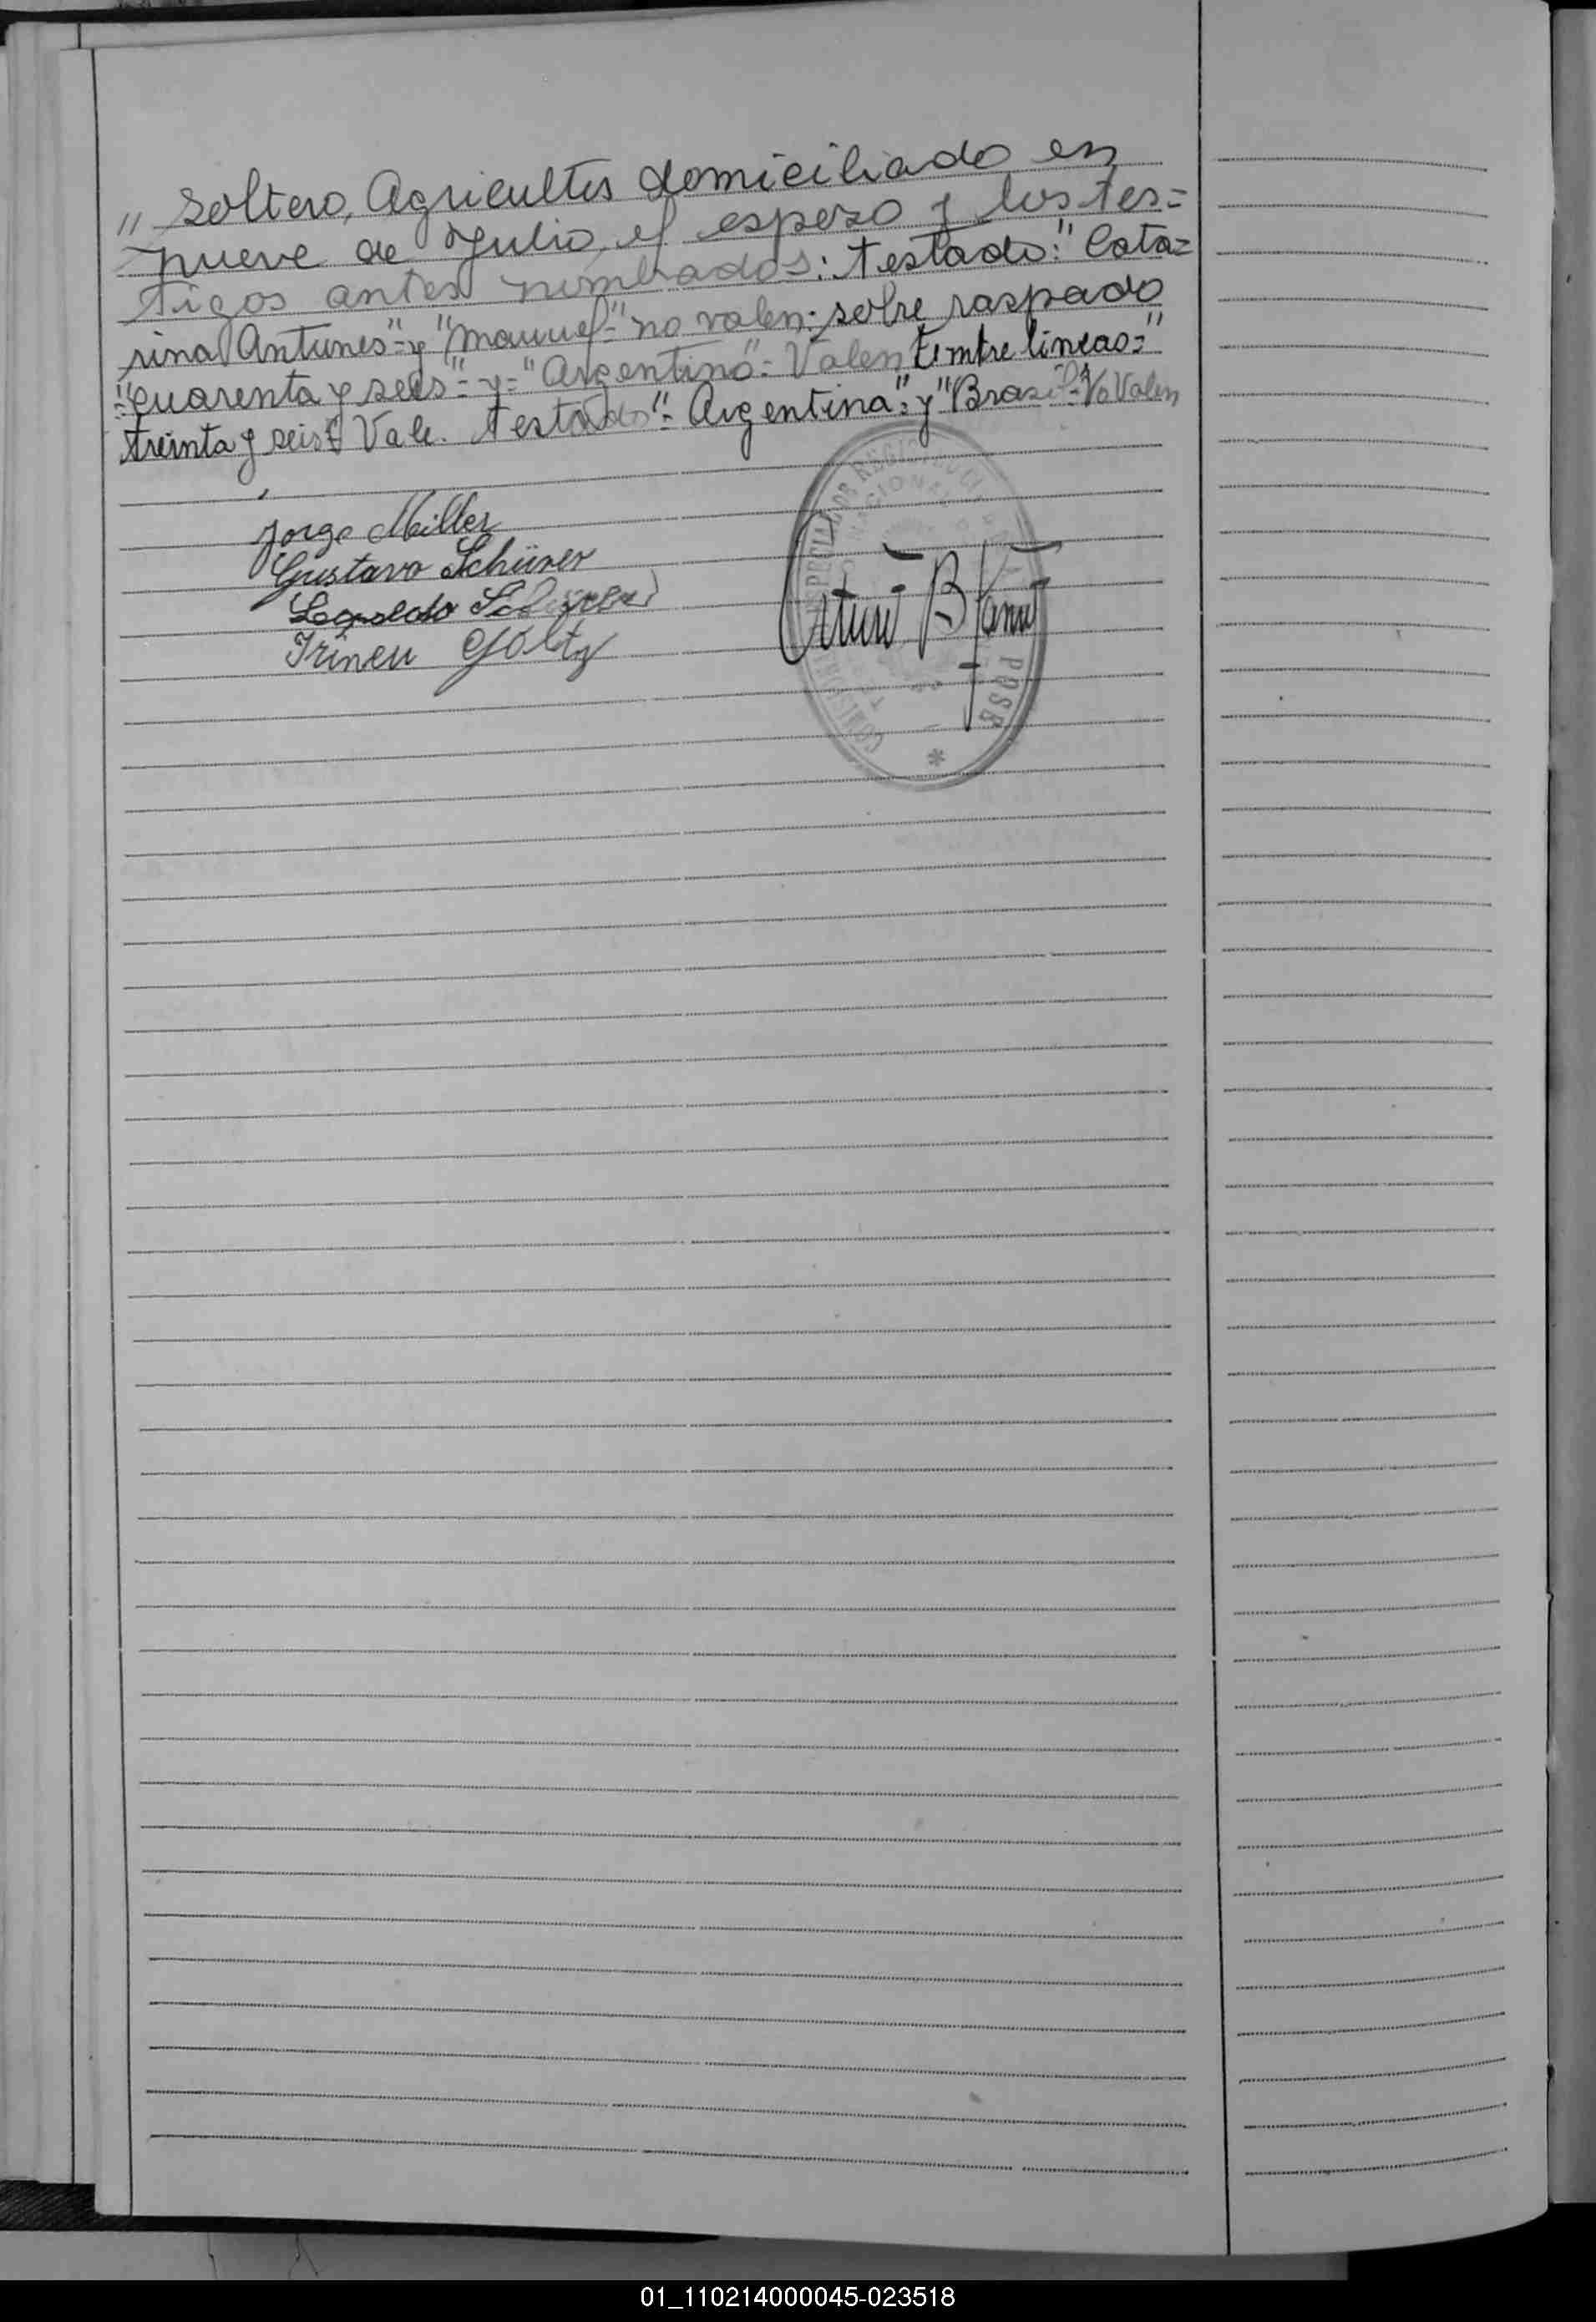 " Soltero, Agricultor domiciliado en
nueve de Julio, el esposo y los tes=
tigos antes nombrados: testado: "Cata=
rina Antunes"= y "Manuel"= no valen: sobre raspado
="cuarenta y seis"= y= "Argentino"= Valen Emtre lineas="
treinta y seis= Vale. testado "= Argentina"= y "Brasil"= No Valen
Jorge Miller
Gustavo Schürer
Leopoldo
Irineu Goltz
REGISTRO CIVIL
NACIONAL
POSE
01_110214000045-023518